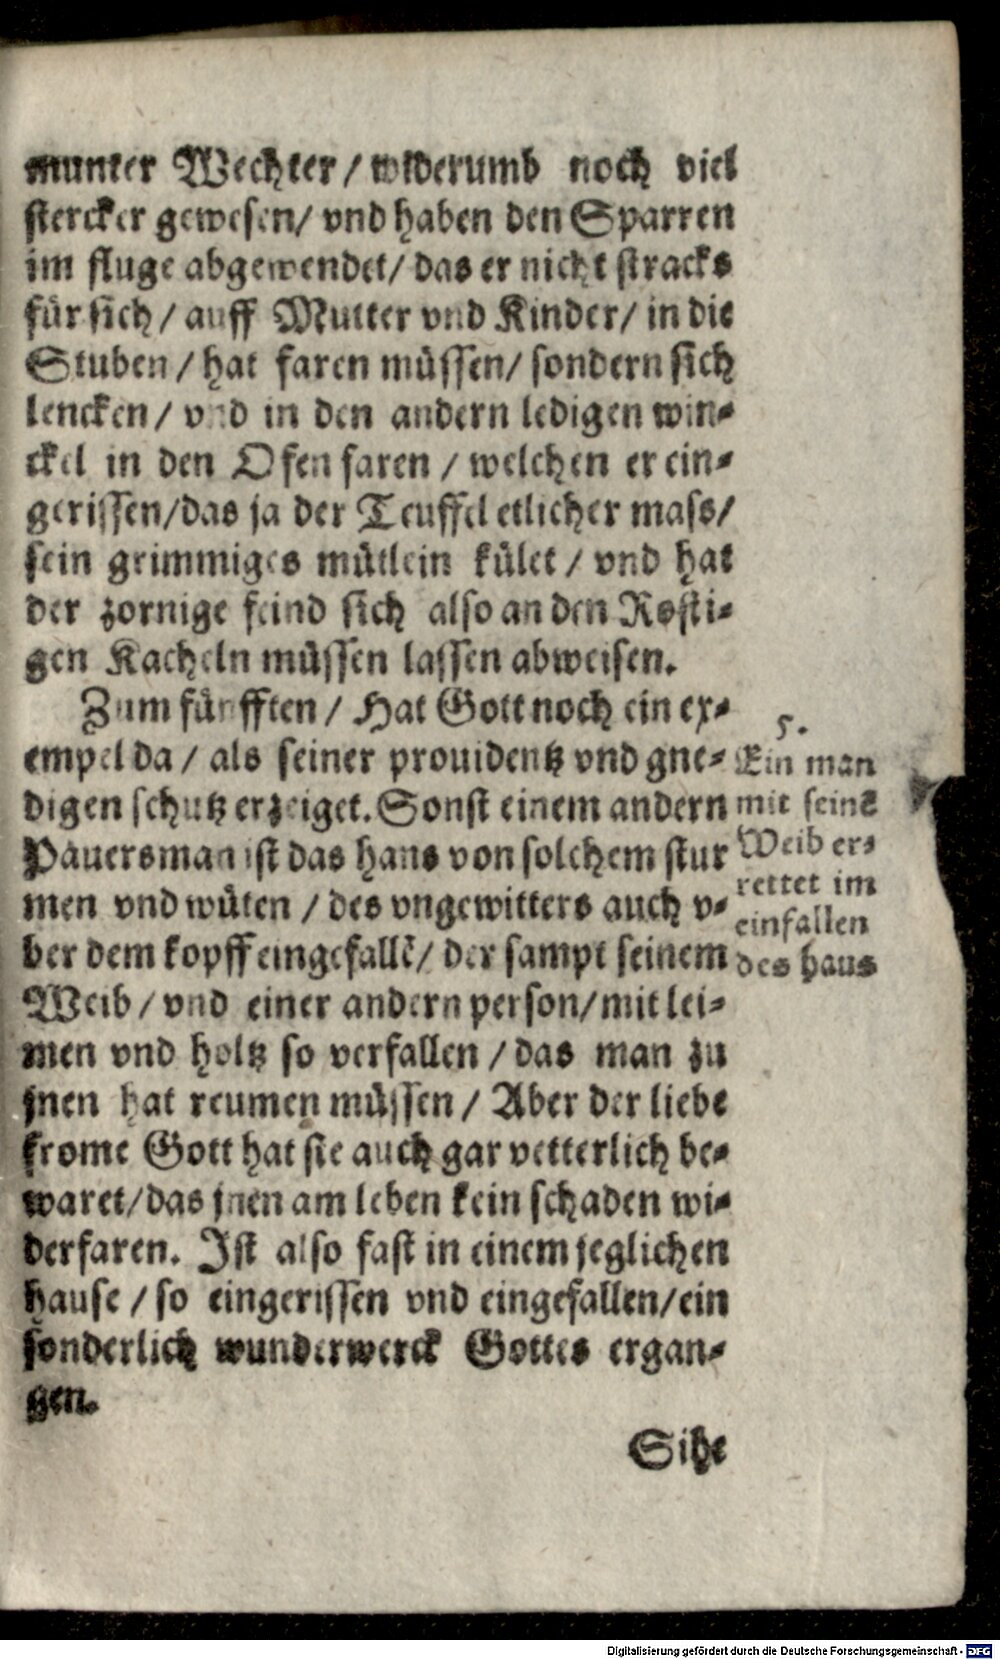 munter Wechter / widerumb noch viel
stercker gewesen / vnd haben den Sparren
im fluge abgewendet / das er nicht stracks
für sich / auff Mutter vnd Kinder / in die
Stuben / hat faren müssen / sondern sich
lencken / vnd in den andern ledigen win-
ckel in den Ofen faren / welchen er ein-
gerissen / das ja der Teuffel etlicher mass /
sein grimmiges mütlein kület / vnd hat
der zornige feind sich also an den Rosti-
gen Kacheln müssen lassen abweisen.
Zum fünfften / Hat Gott noch ein ex-
empel da / als seiner prouidentz vnd gne-
digen schutz erzeiget. Sonst einem andern
Pauersman ist das haus von solchem stur
men vnd wüten / des vngewitters auch v-
ber dem kopff eingefallē / der sampt seinem
Weib / vnd einer andern person / mit lei-
men vnd holtz so verfallen / das man zu
jnen hat reumen müssen / Aber der liebe
frome Gott hat sie auch gar vetterlich be-
waret / das jnen am leben kein schaden wi-
derfaren. Ist also fast in einem jeglichen
hause / so eingerissen vnd eingefallen / ein
sonderlich wunderwerck Gottes ergan-
gen.
5.
Ein man
mit seinē
Weib er-
rettet im
einfallen
des haus
Sihe
Digitalisierung gefördert durch die Deutsche Forschungsgemeinschaft - DFG